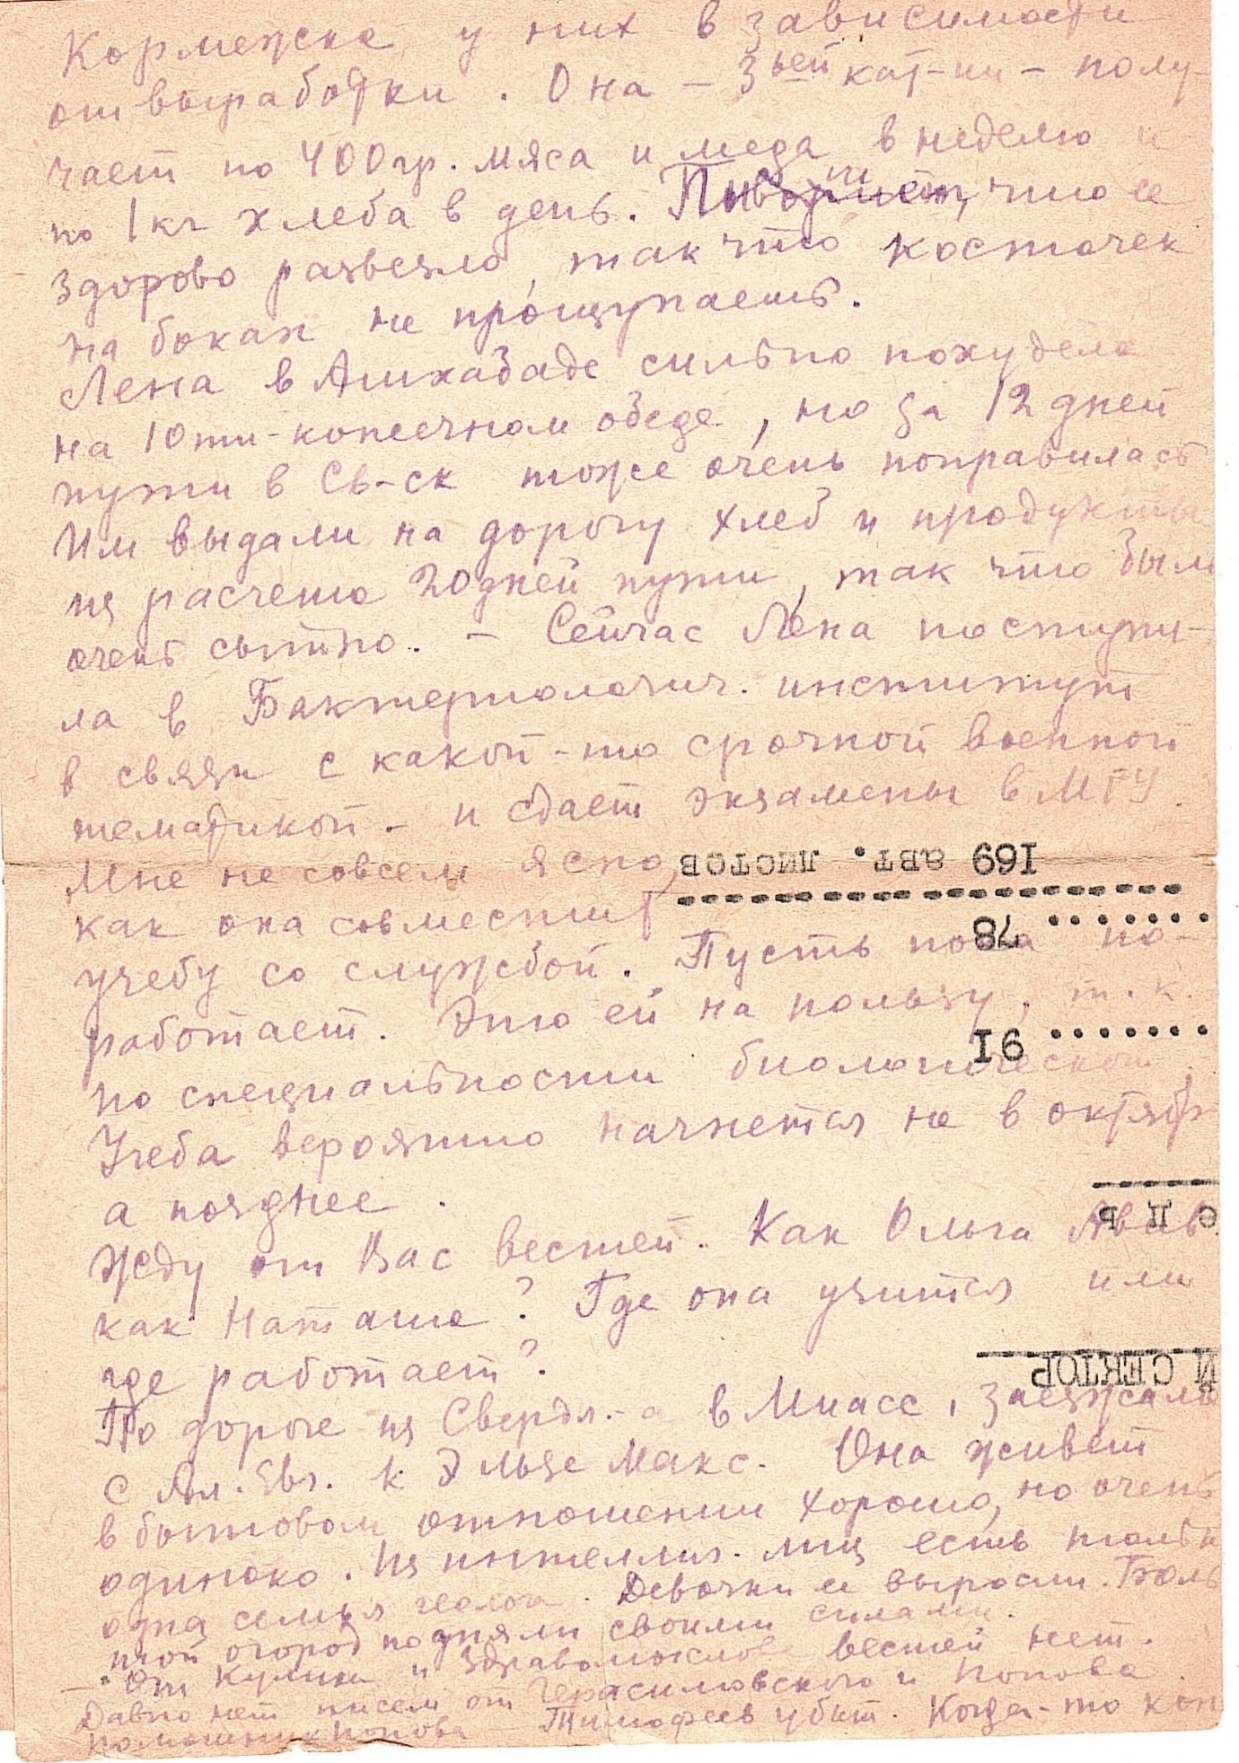 Кормежка у них в зависимости
от выработки. Она – 3ьей кат-ии – полу-
чает по 400 гр. мяса и меда в неделю и
по 1 кг хлеба в день. что ее
здорово развезло, так что косточек
на боках не прощупаешь.
Лена в Ашхабаде сильно похудела
на 10ти-копеечном обеде, но за 12 дней
пути в Св-ск тоже очень поправилась
Им выдали на дорогу хлеб и продукты
из расчета 20 дней пути, так что были
очень сытно. – Сейчас Лена поступи-
ла в Бактериологич. институт
в связи с какой-то срочной военной
тематикой – и сдает экзамены в МГУ.
Мне не совсем ясно,
169 авт. листов
как она совместит
78
учебу со службой. Пусть пока по-
работает. Это ей на пользу, т.к.
91
по специальности биологической.
Учеба вероятно начнется не в октябр
а позднее.
Жду от Вас вестей. Как Ольга
как Наташа? Где она учится или
где работает?
Й СЕКТОР
По дороге из Свердл.-а в Миасс, заезжали
с Ал. Евг. к Эльзе Макс. Она живет
в бытовом отношении хорошо, но очень
одиноко. Из интеллиг. лиц есть только
одна семья геолога. Девочки ее выросли. Боль
шой огород подняли своими силами.
– От Кулика и вестей нет.
Давно нет писем от Герасимовского и Попова.
помощник Попова – Тимофеев убит. Когда-то кон